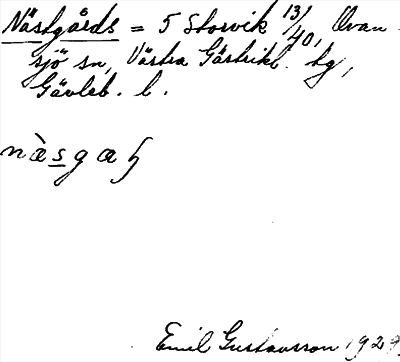 Nästgårds = 5 Storvik 13/40, Ovan-
sjö sn, Västra Gästrikl. hg,
Gävleb. l.
Emil Gustavsson 1929.